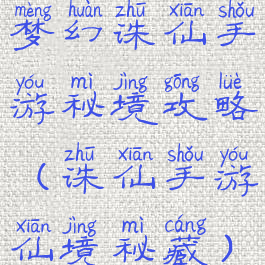 mèng huàn zhū xiān shǒu
梦幻诛仙手
yóu mì jìng gōng lüè
游秘境攻略
zhū xiān shǒu yóu
(诛仙手游
xiān jìng mì cáng
仙境秘藏)